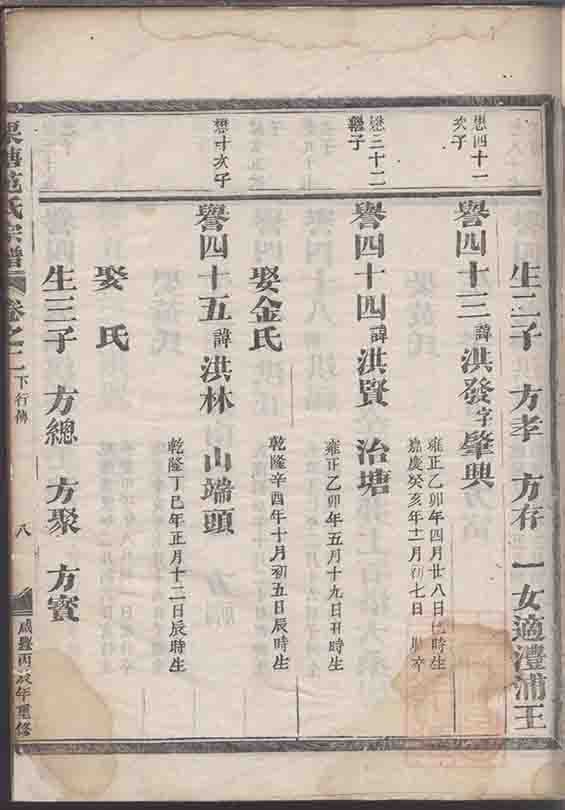 生二子 方孝 方存 一女適澧浦王
想四十一
次子
譽四十三諱洪發字肇興
雍正乙卯年四月廿八日巳時生
嘉慶癸亥年十二月初七日 時卒
想三十二
繼子
譽四十四諱洪賢 治塘
雍正乙卯年五月十九日丑時生
娶金氏
乾隆辛酉年十月初五日辰時生
想 十次子
譽四十五諱洪林 山端頭
乾隆丁巳年正月十二日辰時生
娶 氏
生三子 方總 方聚 方寶
范氏宗譜 卷之二 下行傳 八 咸豐丙辰年重修